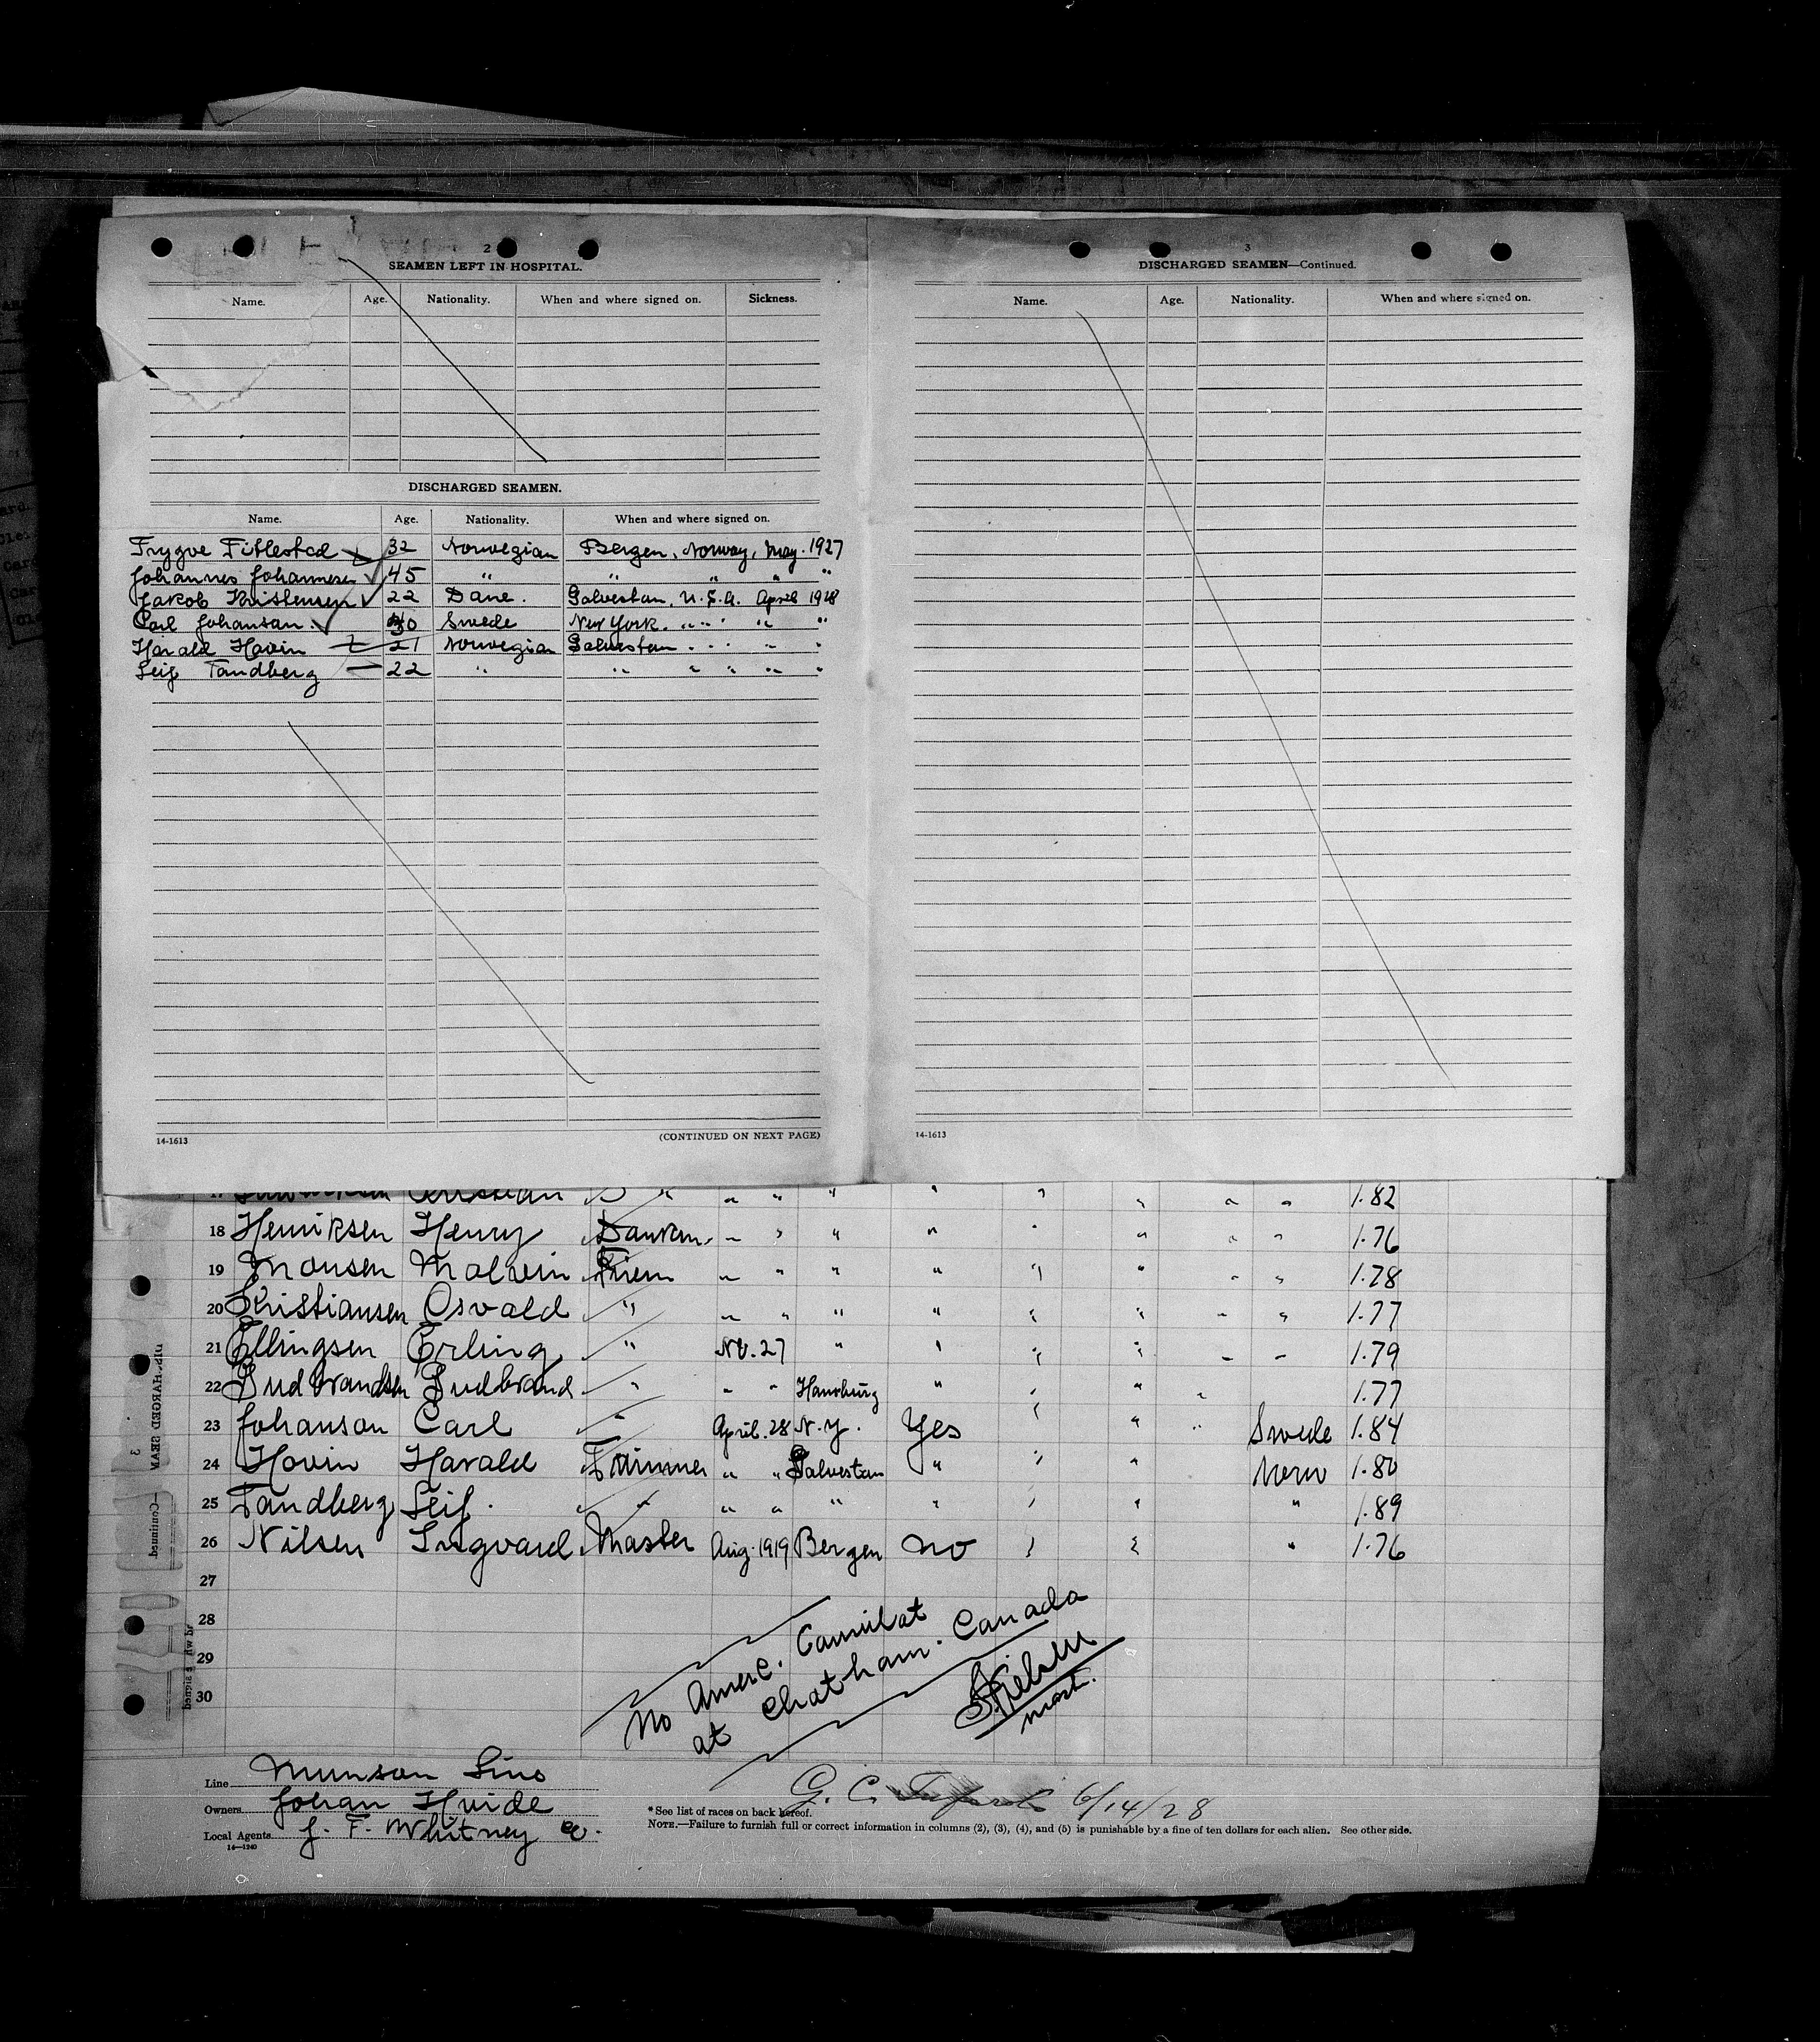 2
SEAMEN LEFT IN HOSPITAL.
Name. Age. Nationality. When and where signed on. Sickness.
DISCHARGED SEAMEN.
Name. Age. Nationality. When and where signed on.
Trygve Fitlestad 32 Norwegian Bergen, Norway, May. 1927
Johannes Johannesen 45 " " " " "
Jakob Kristensen 22 Dane. Galveston, U.S.A. April 1928
Carl Johanson. 30 Swede New York. " " " " "
Harald Hovin 21 Norwegian Galveston " " " " "
Leif Tandberg 22 " " " " " "
14-1613 (CONTINUED ON NEXT PAGE)
3
DISCHARGED SEAMEN—Continued.
Name. Age. Nationality. When and where signed on.
14-1613
1.82
18 Henriksen Henry Dankm. " " " " " " " " 1.76
19 Monsen Malvin Firem " " " " " " " " 1.78
20 Kristiansen Osvald " " " " " " " " " 1.77
21 Ellingsen Erling " No. 27 " " " " " " 1.79
22 Gudbrandsen Gudbrand " " " Hamburg " " " " 1.77
23 Johanson Carl " April. 28 N.Y. Yes " " " Swede 1.84
24 Hovin Harald Trimmer " " Galveston " " " Norw 1.80
25 Tandberg Leif. " " " " " " " " 1.89
26 Nilsen Ingvard Master Aug. 1919 Bergen No " " " 1.76
27
28
29
30
No Amerc. Consul at
at Chatham. Canada
Nielsen
mast.
Line Munson Line
Owners Johan Hvide
Local Agents J. F. Whitney Co.
14—1240
G. C. 6/14/28
*See list of races on back hereof.
NOTE.—Failure to furnish full or correct information in columns (2), (3), (4), and (5) is punishable by a fine of ten dollars for each alien. See other side.